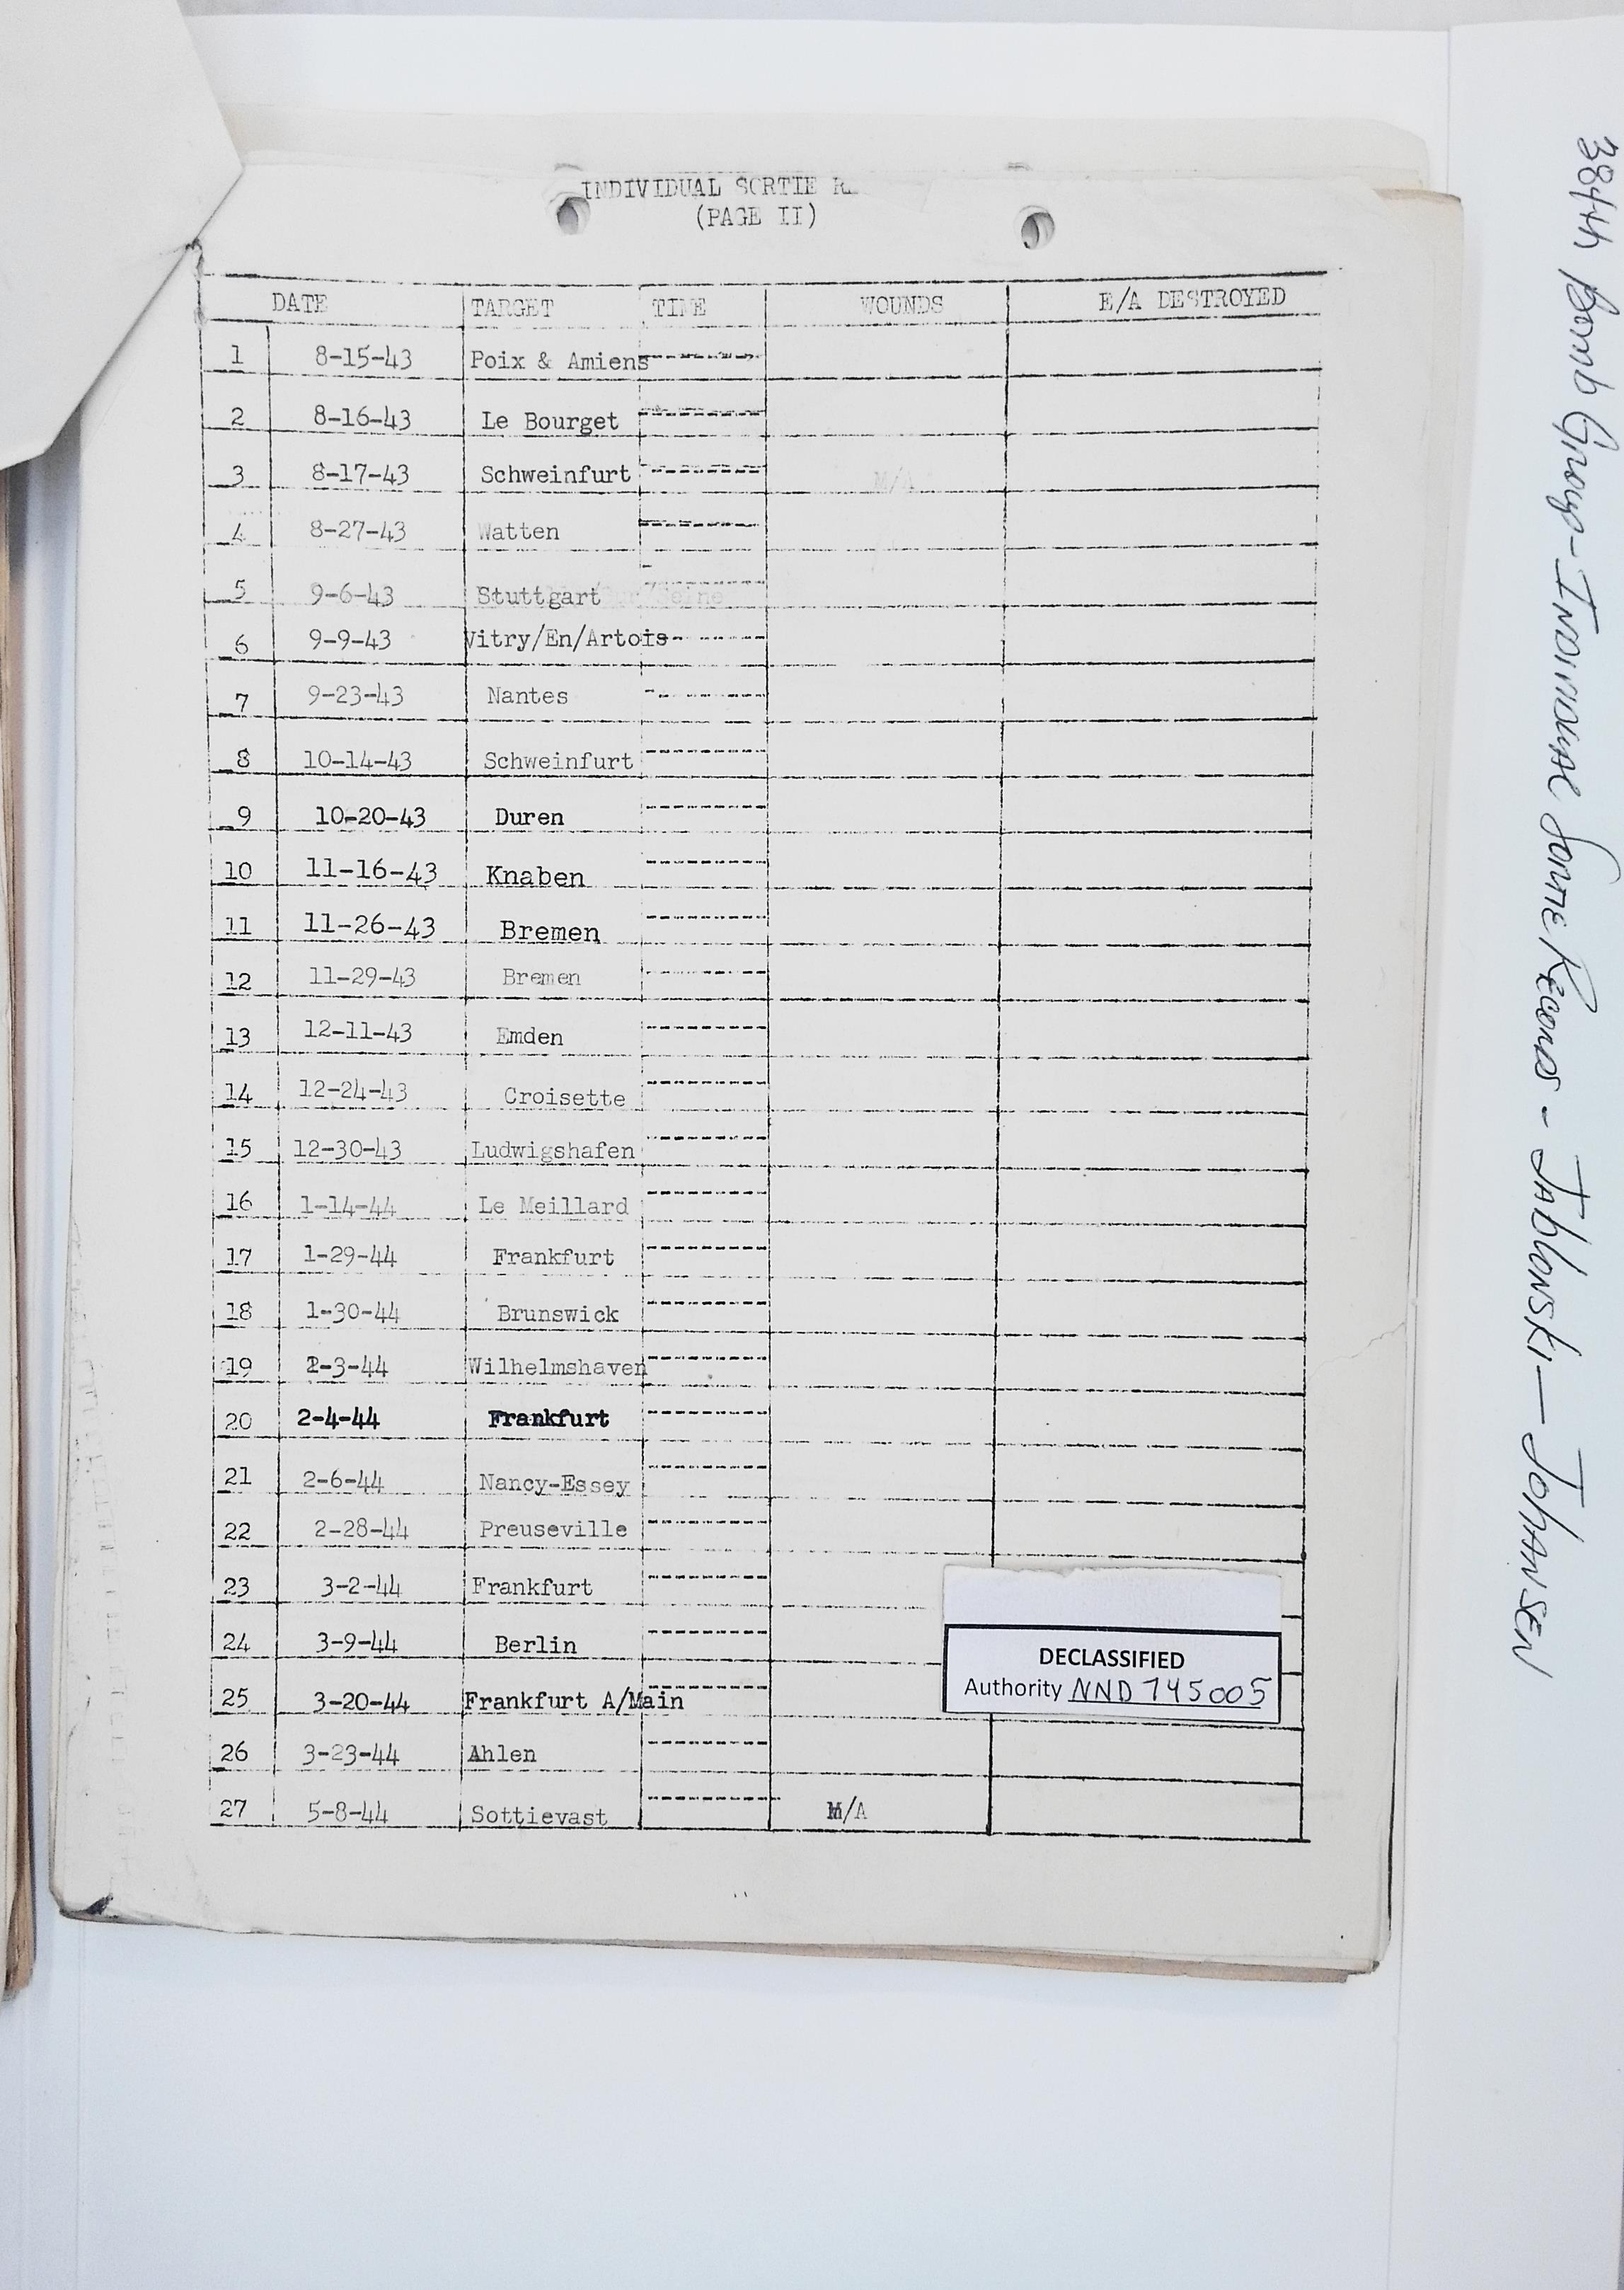 INDIVIDUAL SORTIE R
(PAGE II)
DATE TARGET TIME WOUNDS E/A DESTROYED
1 8-15-43 Poix & Amiens
2 8-16-43 Le Bourget
3 8-17-43 Schweinfurt M/A
4 8-27-43 Watten
5 9-6-43 Stuttgart /Seine
6 9-9-43 Vitry/En/Artois
7 9-23-43 Nantes
8 10-14-43 Schweinfurt
9 10-20-43 Duren
10 11-16-43 Knaben
11 11-26-43 Bremen
12 11-29-43 Bremen
13 12-11-43 Emden
14 12-24-43 Croisette
15 12-30-43 Ludwigshafen
16 1-14-44 Le Meillard
17 1-29-44 Frankfurt
18 1-30-44 Brunswick
19 2-3-44 Wilhelmshaven
20 2-4-44 Frankfurt
21 2-6-44 Nancy-Essey
22 2-28-44 Preuseville
23 3-2-44 Frankfurt
24 3-9-44 Berlin
25 3-20-44 Frankfurt A/Main
26 3-23-44 Ahlen
27 5-8-44 Sottievast M/A
DECLASSIFIED
Authority NND 745005
384th Bomb Group - Individual Sortie Records - Jablonski — Johansen